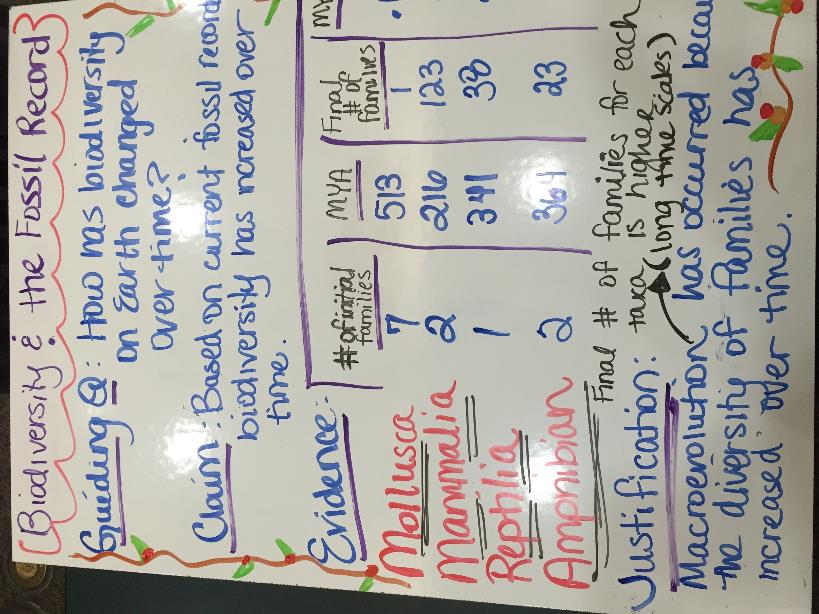 Biodiversity & the Fossil Record
Guiding Q: How has biodiversity
on Earth changed
over time?
Claim: Based on current fossil record
biodiversity has increased over
time.
Evidence:
# of initial families MYA Final # of families
Mollusca 7 513 1
Mammalia 2 216 123
Reptilia 1 341 38
Amphibian 2 364 23
Final # of families for each
taxa is higher
(long time scales)
Justification:
Macroevolution has occurred
the diversity of families has
increased over time.